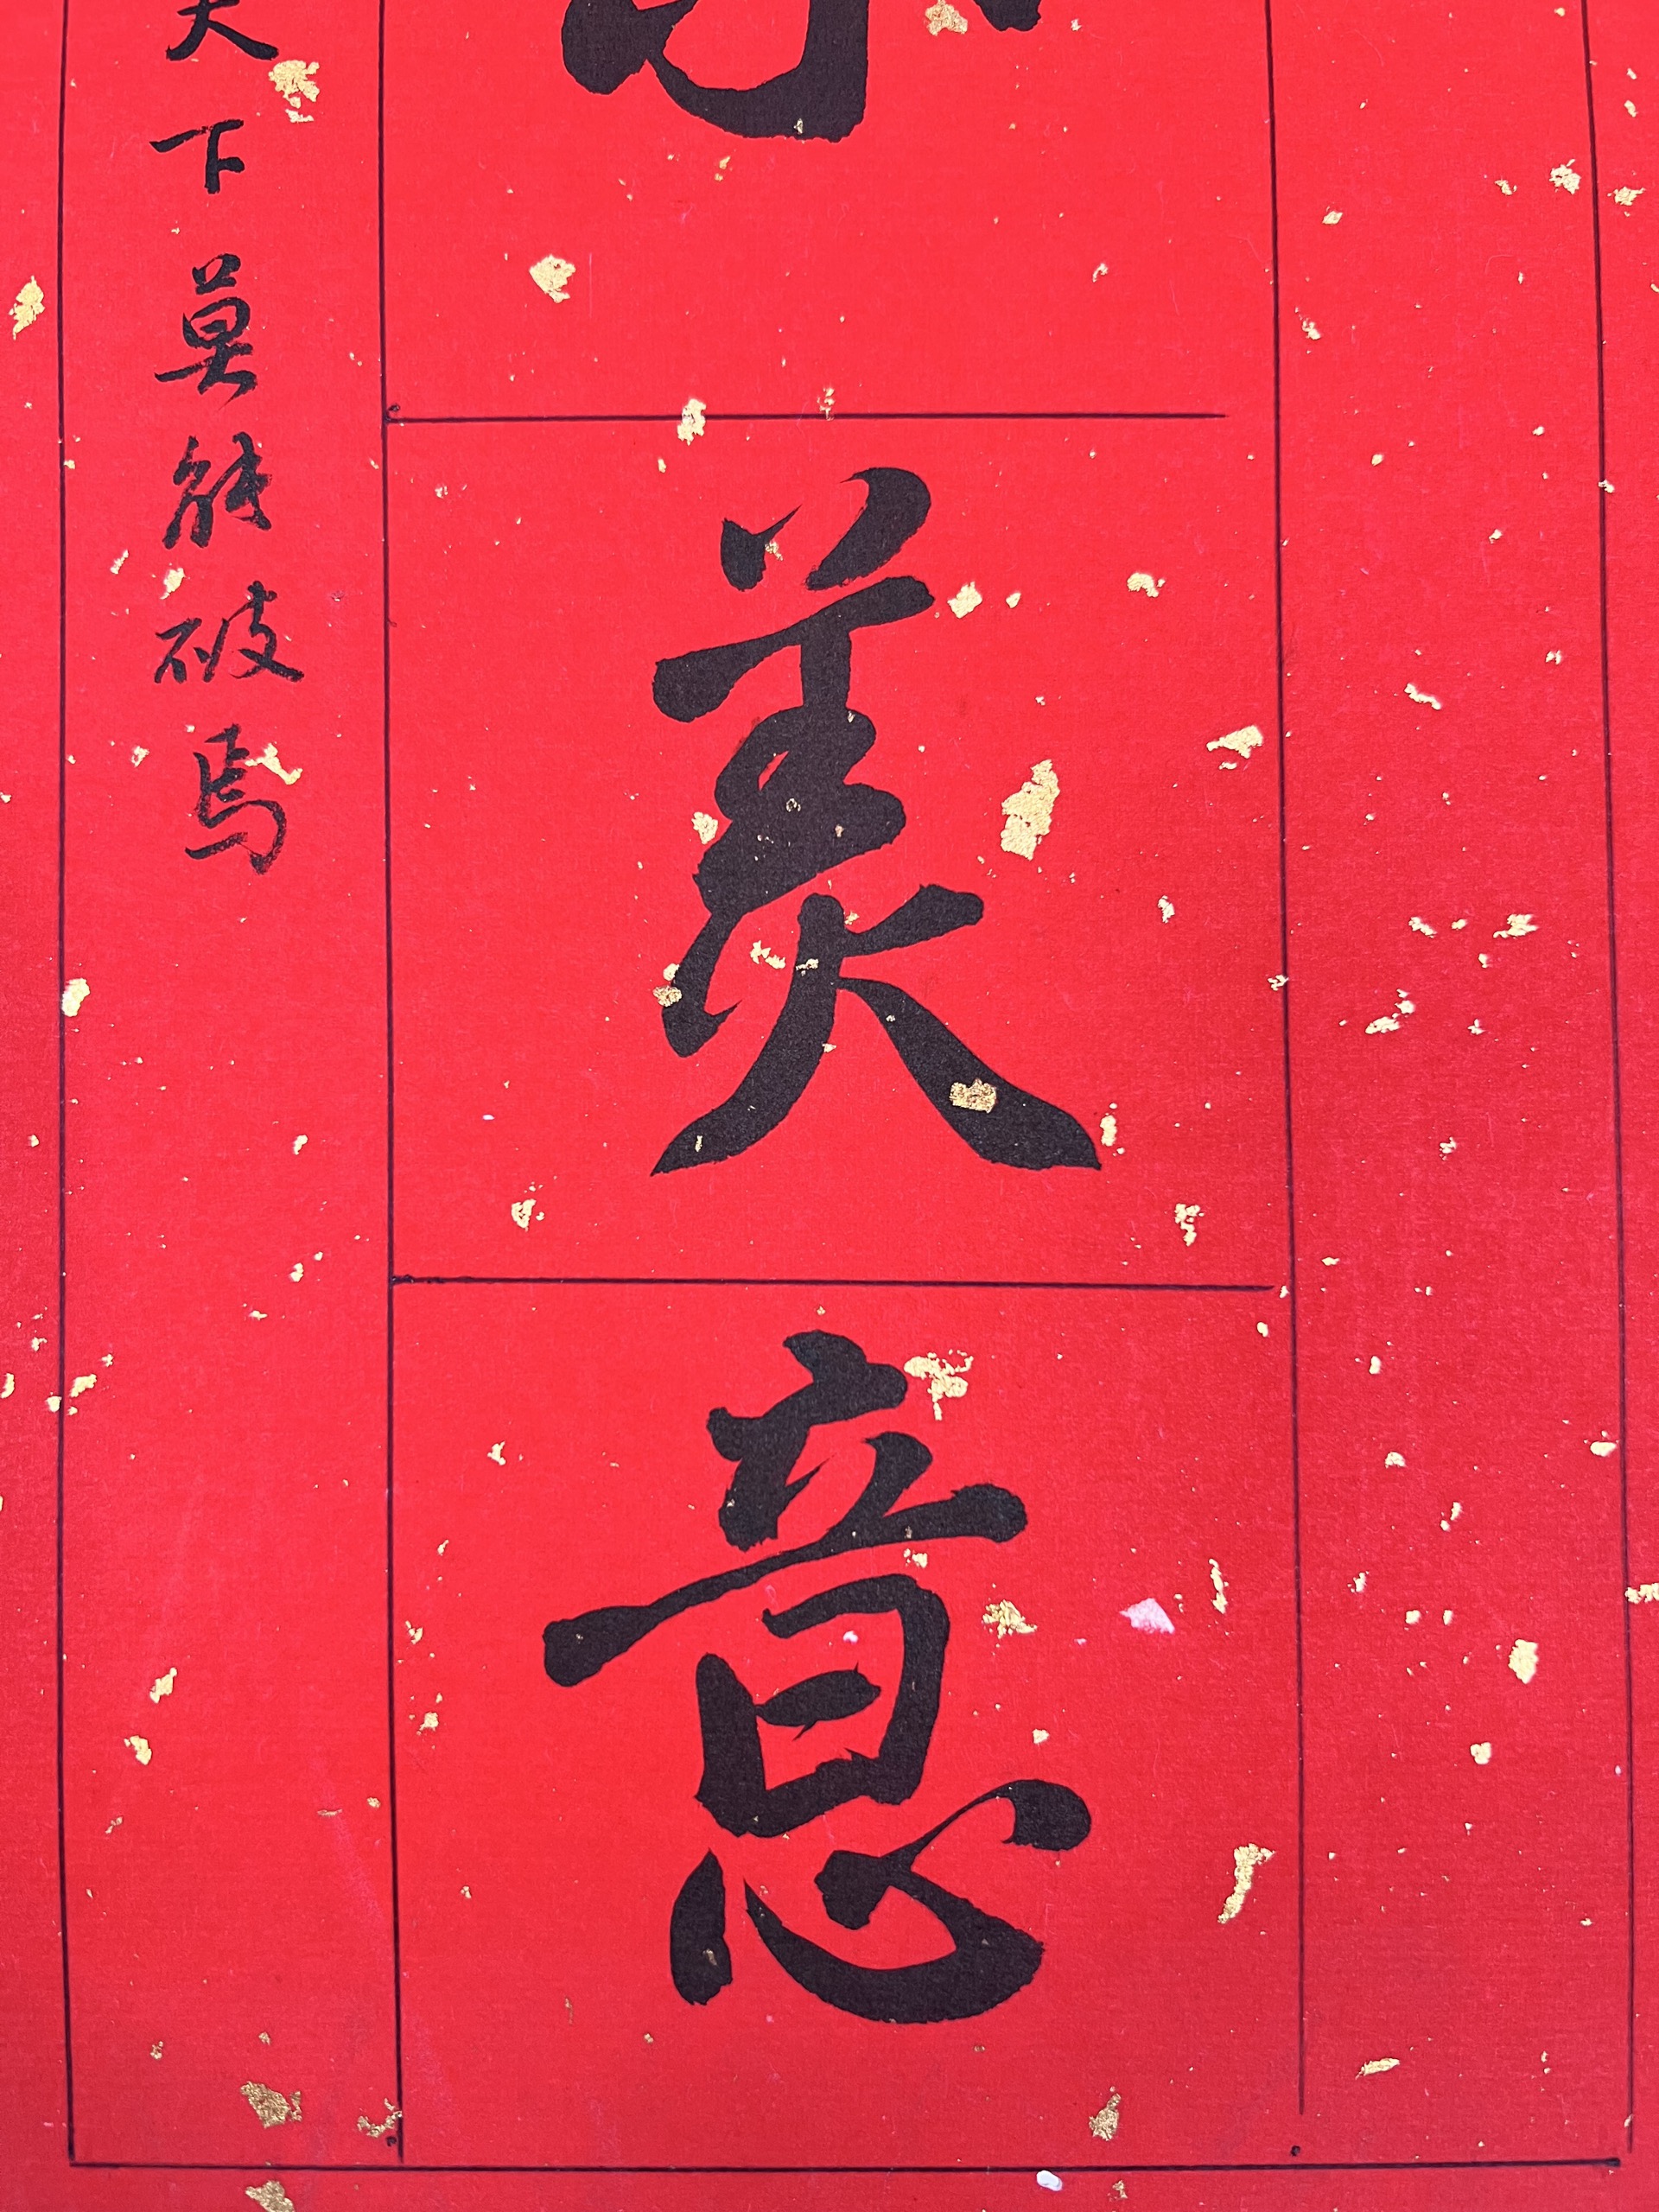 美意
天下莫能破焉